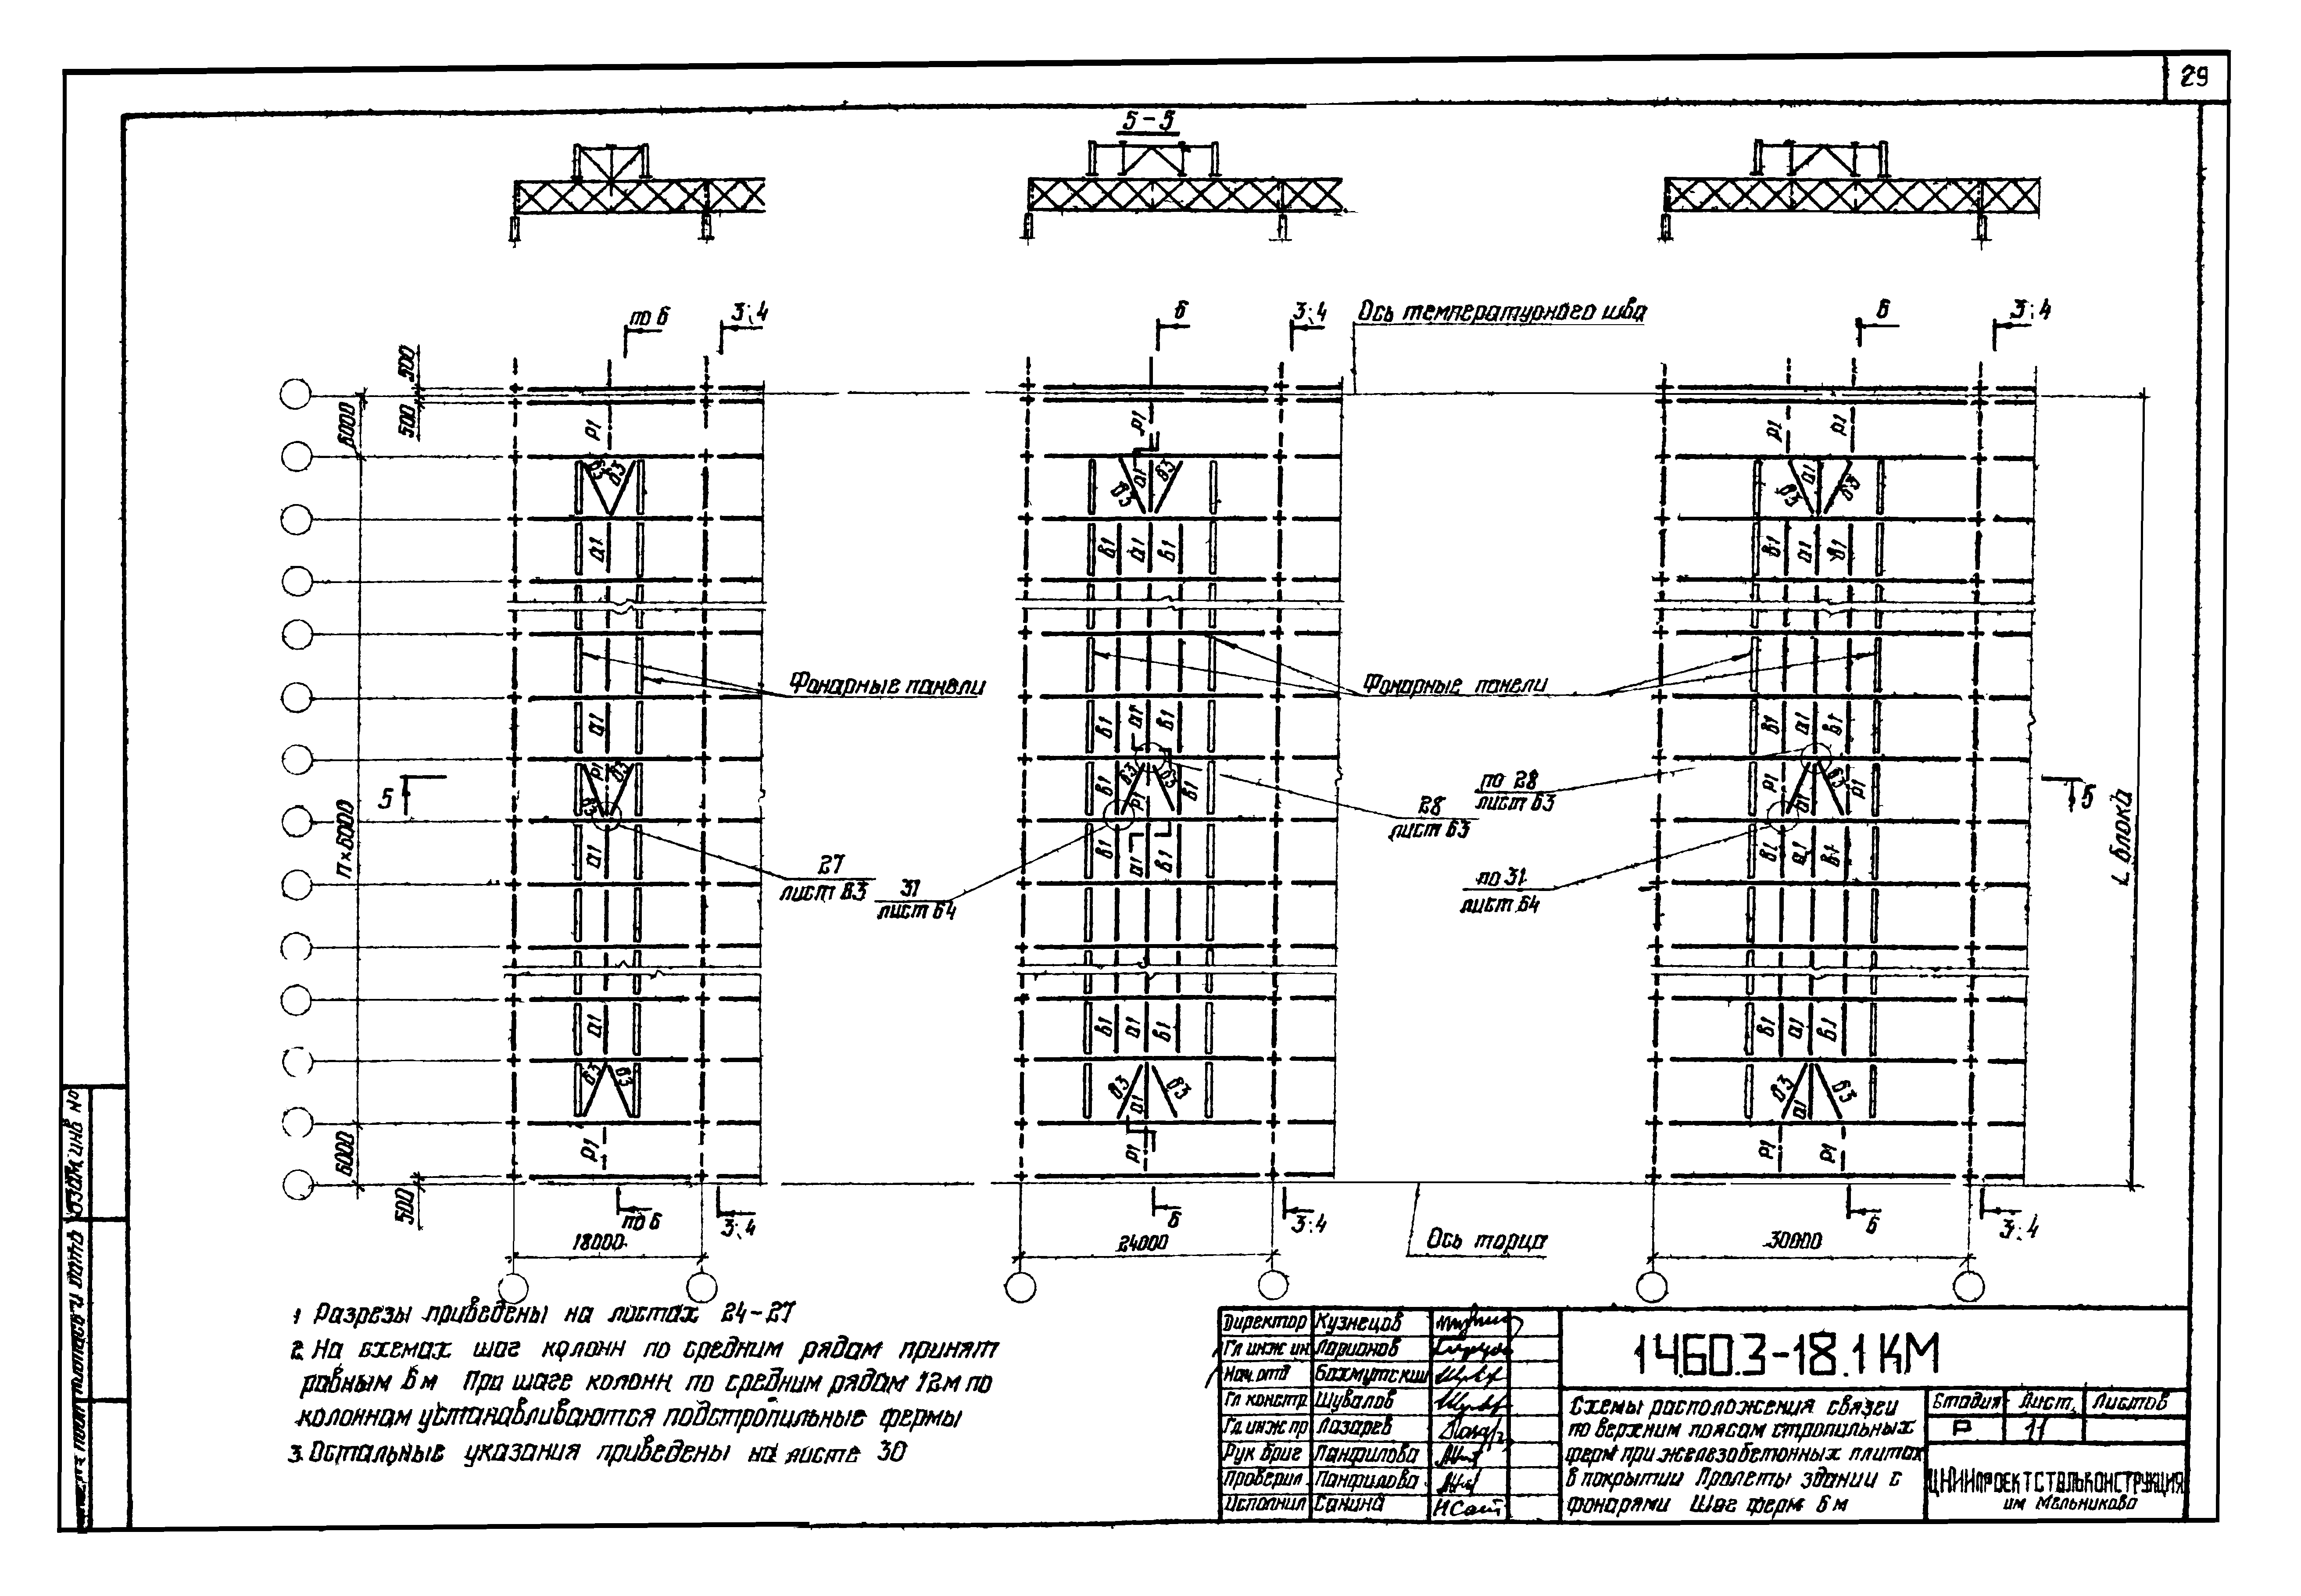 29
5-5
по 6
3;4
6
3;4
Ось температурного шва
6
3;4
500
500
6000
р1
р1
р1
р1
в3
в3
в3
а1
в3
в3
а1
в3
а1
в1
а1
в1
в1
а1
в1
Фонарные панели
Фонарные панели
а1
в1
а1
в1
в1
а1
в1
5
р1
в3
в3
в1
в3
р1
в3
в1
р1
а1
в3
р1
5
по 28
лист 63
28
лист 63
п×6000
а1
в1
а1
в1
в1
а1
в1
27
лист 63
31
лист 64
по 31
лист 64
L блока
а1
в1
а1
в1
в1
а1
в1
в3
в3
в3
а1
в3
в3
а1
в3
6000
р1
р1
р1
р1
500
по 6
3;4
6
3;4
6
3;4
18000
24000
Ось торца
30000
1 Разрезы приведены на листах 24-27
2. На схемах шаг колонн по средним рядам принят
равным 6 м При шаге колонн по средним рядам 12м по
колоннам устанавливаются подстропильные фермы
3. Остальные указания приведены на листе 30
Директор Кузнецов
Гл инж ин Ларионов
Нач.отд Бахмутский
Гл констр Шувалов
Гл. инж пр Лазарев
Рук бриг Панфилова
Проверил Панфилова
Исполнил Санина
1.460.3-18.1 КМ
Схемы расположения связей
по верхним поясам стропильных
ферм при железобетонных плитах
в покрытии Пролеты здании с
фонарями Шаг ферм 6 м
Стадия Лист Листов
Р 11
ЦНИИпроектстальконструкция
им Мельникова